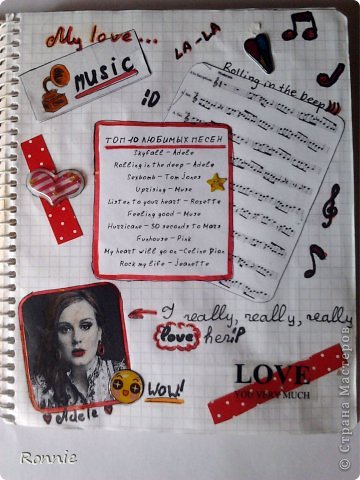 My love...
LA-LA
MUSIC
:D
Rolling in the Deep
ТОП 10 ЛЮБИМЫХ ПЕСЕН
Skyfall – Adele
Rolling in the deep – Adele
Sexbomb – Tom Jones
Uprising – Muse
Listen to your heart – Roxette
Feeling good – Muse
Hurricane – 30 seconds to Mars
Funhouse – Pink
My heart will go on – Celine Dion
Rock my life – Jeanette
I really, really, really
love her:P
WOW!
Adele
LOVE
YOU VERY MUCH
Ronnie
© Страна Мастеров